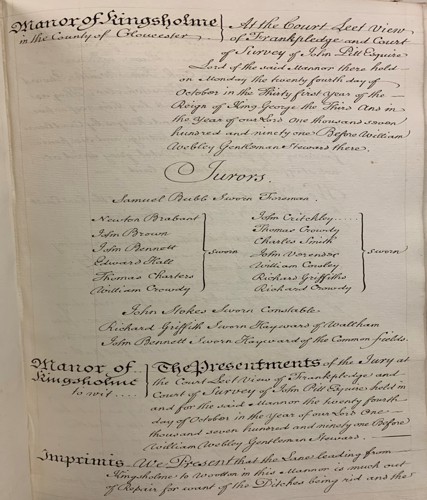 Manor of Kingsholme
in the County of Gloucester
At the Court Leet View
of Frankpledge and Court
of Survey of John Pitt Esquire
Lord of the said Mannor there held
on Monday the twenty fourth day of
October in the Thirty first year of the
Reign of King George the Third And in
the Year of our Lord One thousand seven
hundred and ninety one Before William
Webley Gentleman Steward there.
Jurors.
Samuel Bubb Sworn Foreman.
Newton Brabant
John Brown
John Bennett
Edward Hall
Thomas Charters
William Crowdy
Sworn
John Critchley
Thomas Crowdy
Charles Smith
John
William
Richard Griffiths
Richard Crowdy
Sworn
John Stokes Sworn Constable.
Richard Griffith Sworn Hayward of Waltham
John Bennett Sworn Hayward of the Common fields.
Manor of
Kingsholme
to wit
The Presentments of the Jury at
the Court Leet View of Frankpledge and
Court of Survey of John Pitt Esquire held in
and for the said Mannor the twenty fourth
day of October in the Year of our Lord One
thousand seven hundred and ninety one Before
William Webley Gentleman Steward.
Imprimis We Present that the Lane leading from
Kingsholme to Wotton in this Mannor is much out
of Repair for want of the Ditches being rid and the